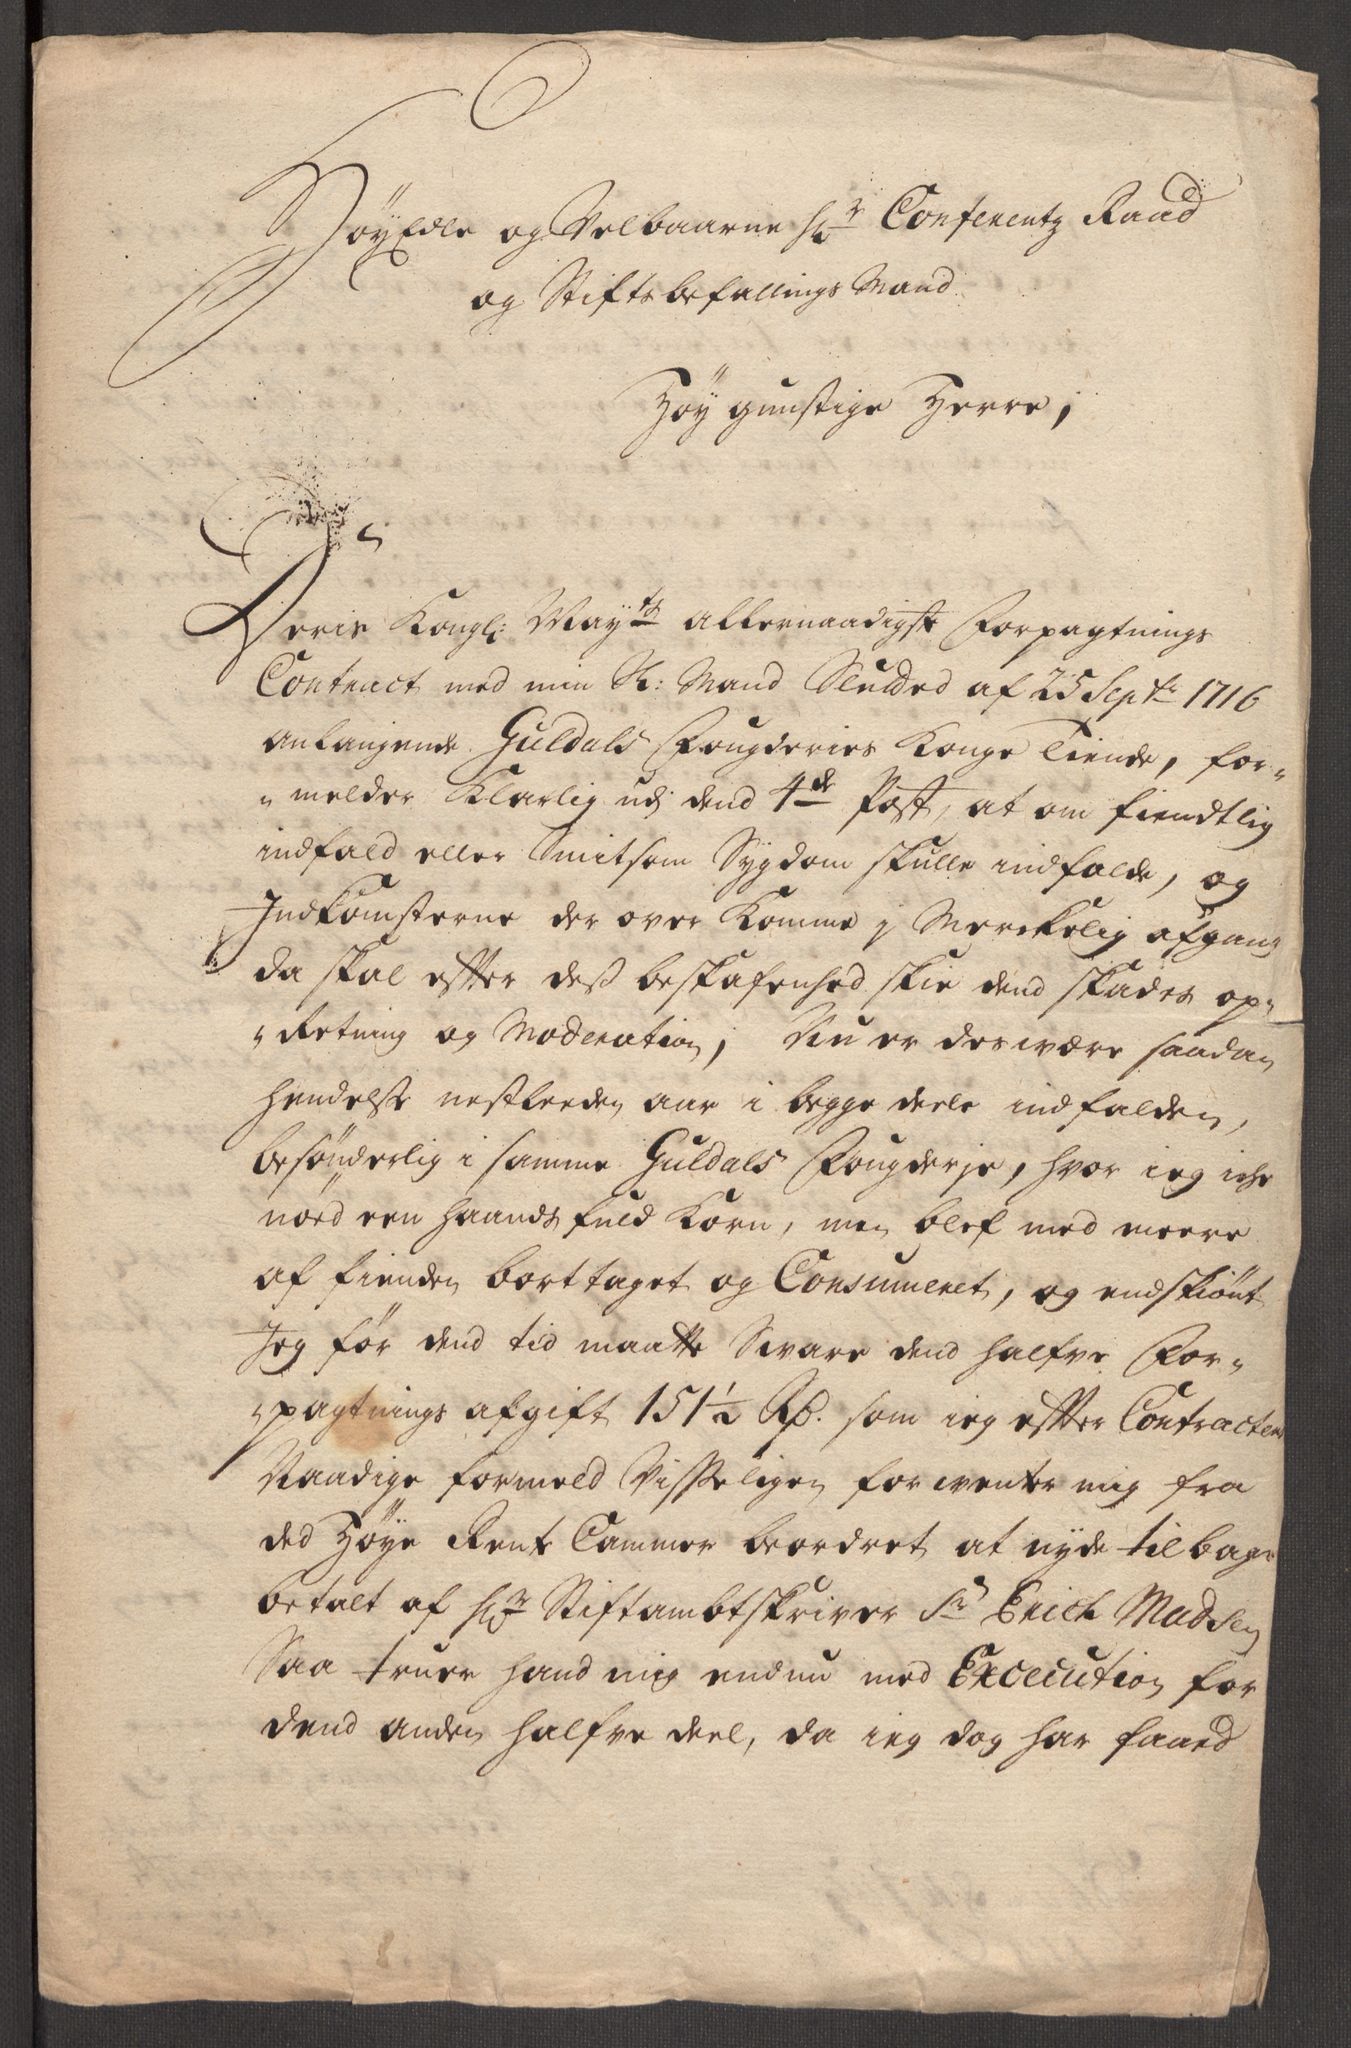 HöyEdle og Velbaarne Hr Conferentz Raad
og Stiftsbefallings Mand
Höy gunstige Herre,
Deris Kongl: Mayts allernaadigste Forpagtnings
Contract med min Sl: Mand Slutted af 25 Septr 1716
anlangende Guldals Fougderies Konge Tiende, for-
melder Klarlig udj dend 4de Post, at om fiendtlig
indfald eller Smitsom Sygdom skulle indfalde, og
Indkomsterne der over komme j Merckelig afgang
da skal efter dess beskafenhed skie dend skades op-
Retning og Moderation; Nu er desværre saadan
hendelse nestleeden aar i begge deele indfalden,
besönderlig i samme Guldals Fougderje, hvor ieg iche
nöed een haandsfuld Korn, men blef med meere
af fienden borttaget og Consumeret, og endskiönt
Jeg för dend tid maatte Svare dend halfve For-
pagtnings afgift 151½ Rd. som ieg efter Contractens
Naadige formeld Visseligen forwenter mig fra
ded Höye Rente Cammer beordret at nyde tilbage
betalt af Hr Stiftambtskriver Sr Erich Madsen
Saa truer hand mig endnu med Execution for
dend anden halfve deel, da ieg dog har faaed